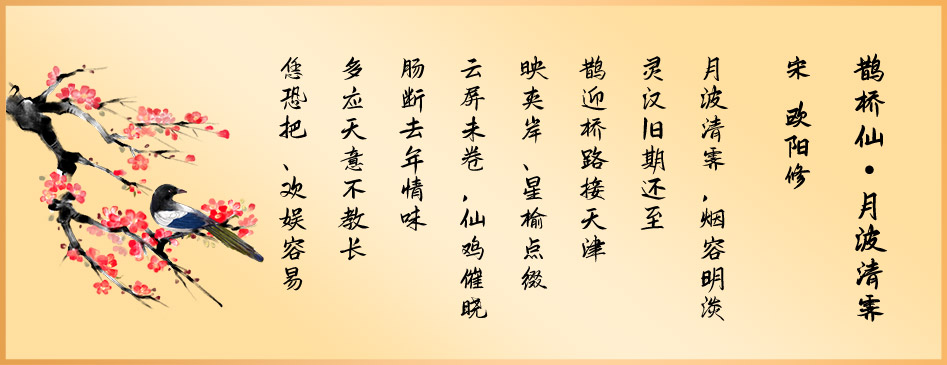 鹊桥仙·月波清霁
宋 欧阳修
月波清霁,烟容明淡
灵汉旧期还至
鹊迎桥路接天津
映夹岸、星榆点缀
云屏未卷,仙鸡催晓
肠断去年情味
多应天意不教长
恁恐把、欢娱容易